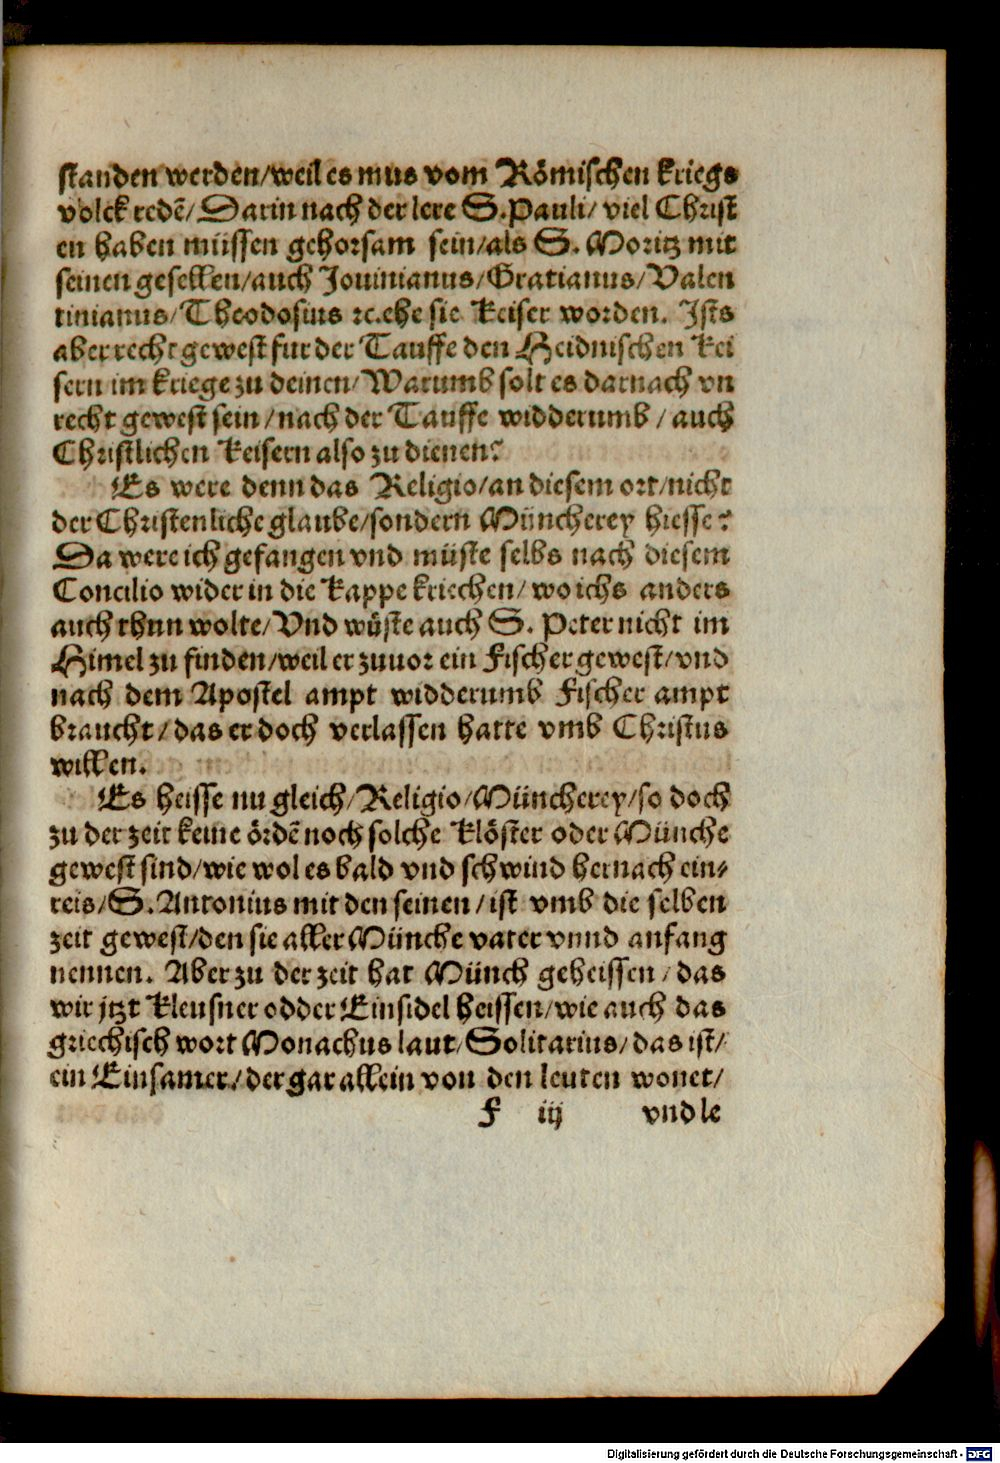 standen werden/weil es mus vom Römischen kriegs
volck redē/Darin nach der lere S.Pauli/viel Christ
en haben müssen gehorsam sein/als S.Moritz mit
seinen gesellen/auch Jouinianus/Gratianus/Valen
tinianus/Theodosius ꝛc.ehe sie Keiser worden. Ists
aber recht gewest fur der Tauffe den Heidnischen Kei
sern im kriege zu deinen/Warumb solt es darnach vn
recht gewest sein/nach der Tauffe widderumb/auch
Christlichen Keisern also zu dienen?
Es were denn das Religio/an diesem ort/nicht
der Christenliche glaube/sondern Müncherey hiesse?
Da were ich gefangen vnd müste selbs nach diesem
Concilio wider in die Kappe kriechen/wo ichs anders
auch thun wolte/Vnd wüste auch S.Peter nicht im
Himel zu finden/weil er zuuor ein Fischer gewest/vnd
nach dem Apostel ampt widderumb Fischer ampt
braucht/das er doch verlassen hatte vmb Christus
willen.
Es heisse nu gleich/Religio/Müncherey/so doch
zu der zeit keine ördē noch solche Klöster oder Münche
gewest sind/wie wol es bald vnd schwind hernach ein-
reis/S.Antonius mit den seinen/ist vmb die selben
zeit gewest/den sie aller Münche vater vnnd anfang
nennen. Aber zu der zeit hat Münch geheissen/das
wir jtzt Kleusner odder Einsidel heissen/wie auch das
griechisch wort Monachus laut/Solitarius/das ist/
ein Einsamer/der gar allein von den leuten wonet/
F iij vnd le
Digitalisierung gefördert durch die Deutsche Forschungsgemeinschaft - DFG